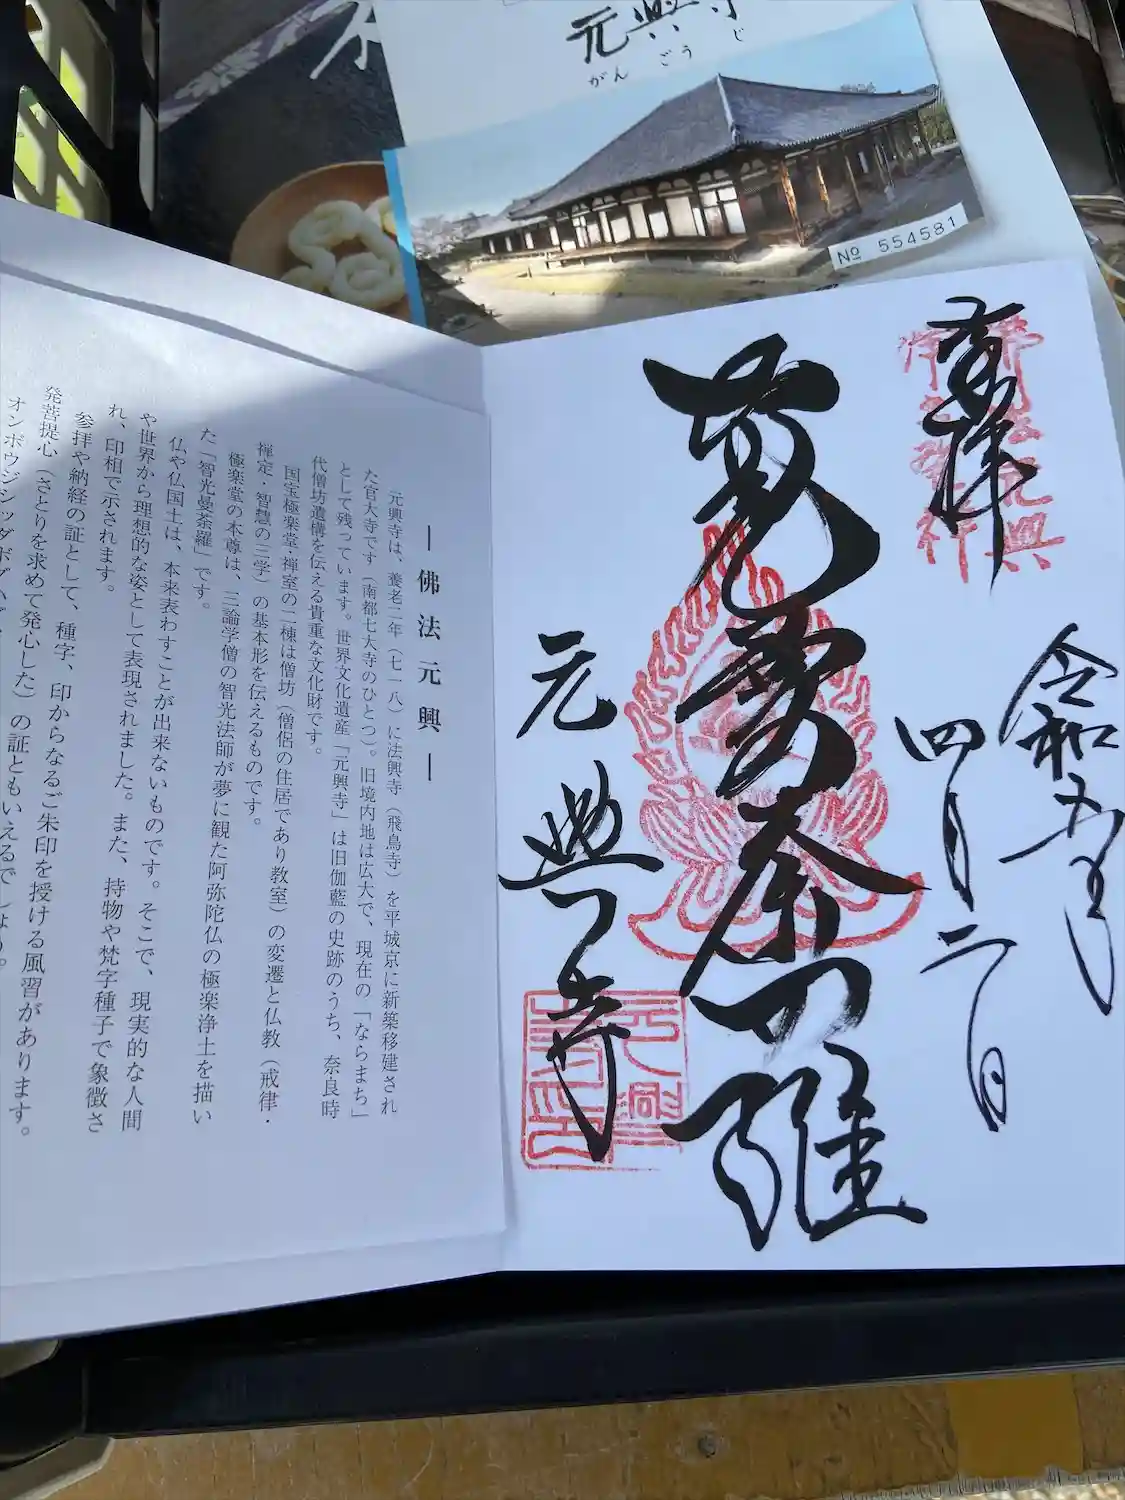 元興寺
がんごうじ
№ 554581
奉拝
令和五年
四月二日
智光曼荼羅
元興寺
―佛法元興―
元興寺は、養老二年(七一八)に法興寺(飛鳥寺)を平城京に新築移建され
た官大寺です(南都七大寺のひとつ)。旧境内地は広大で、現在の「ならまち」
として残っています。世界文化遺産「元興寺」は旧伽藍の史跡のうち、奈良時
代僧坊遺構を伝える貴重な文化財です。
国宝極楽堂・禅室の二棟は僧坊(僧侶の住居であり教室)の変遷と仏教(戒律・
禅定・智慧の三学)の基本形を伝えるものです。
極楽堂の本尊は、三論学僧の智光法師が夢に観た阿弥陀仏の極楽浄土を描い
た「智光曼荼羅」です。
仏や仏国土は、本来表わすことが出来ないものです。そこで、現実的な人間
や世界から理想的な姿として表現されました。また、持物や梵字種子で象徴さ
れ、印相で示されます。
参拝や納経の証として、種字、印からなるご朱印を授ける風習があります。
発菩提心(さとりを求めて発心した)の証ともいえるでしょう。
オンボウジシッダボダハダ